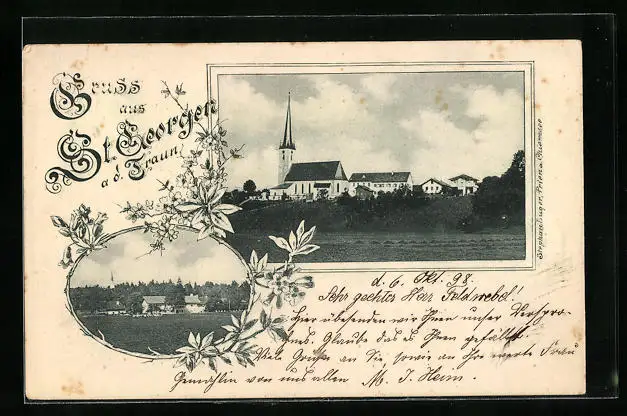 Gruss
aus
St. Georgen
a. d. Traun.
Stephan Unger, Prien a. Chiemsee
d. 6. Okt. 98.
Sehr geehrter Herr Feldwebel!
Hier übersenden wir Ihnen unser Verspro-
nes. Glaube das es Ihnen gefällt.
Viele Grüße an Sie, sowie an Ihre werte Frau
Gemahlin von uns allen M. J. Heim.